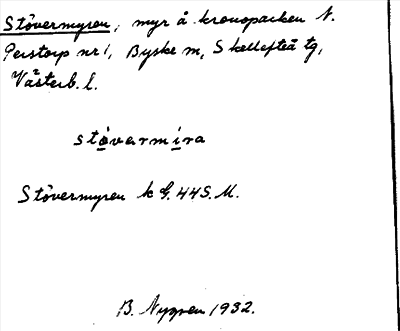 Stövermyren, myr å kronoparken N.
Perstorp nr 1, Byske m, Skellefteå tg,
Västerb. l.
stövarmira
Stövermyren k G. 44 S. M.
B. Nygren 1932.